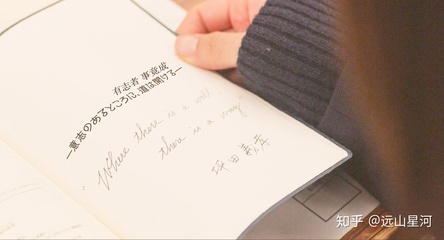 有志者 事竟成
—意志のあるところに、道は開ける—
Where there is a will,
there is a way
坪田義孝
知乎 @远山星河